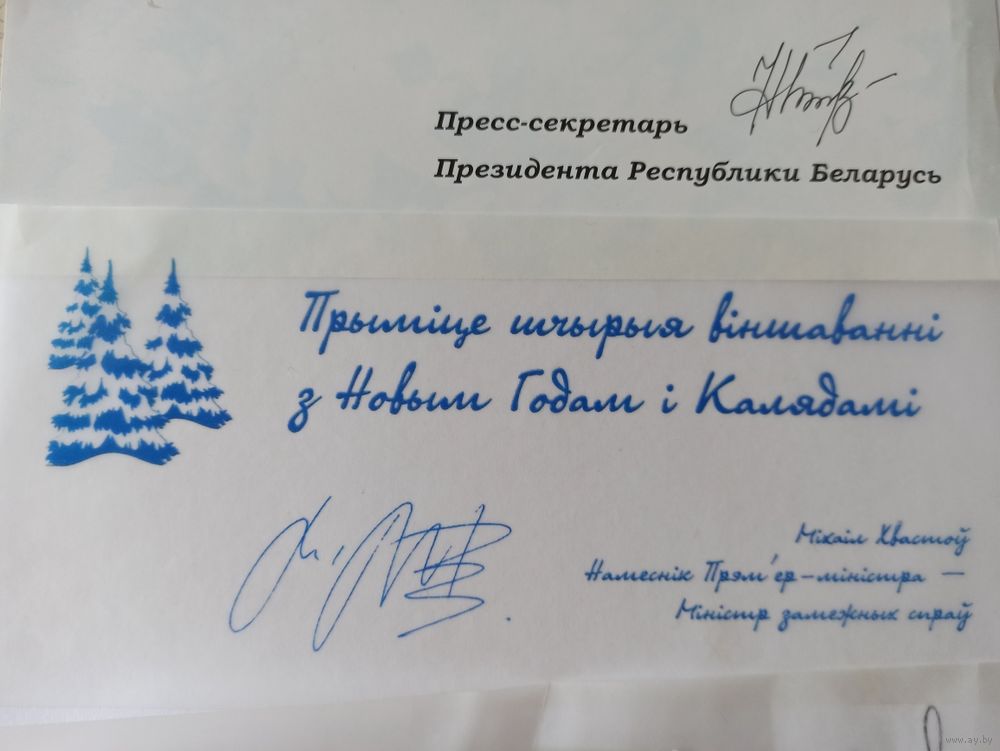 Пресс-секретарь
Президента Республики Беларусь
Прыміце шчырыя віншаванні
з Новым Годам і Калядамі
Міхаіл Хвастоў
Намеснік Прэм'ер-міністра —
Міністр замежных спраў
www.ay.by